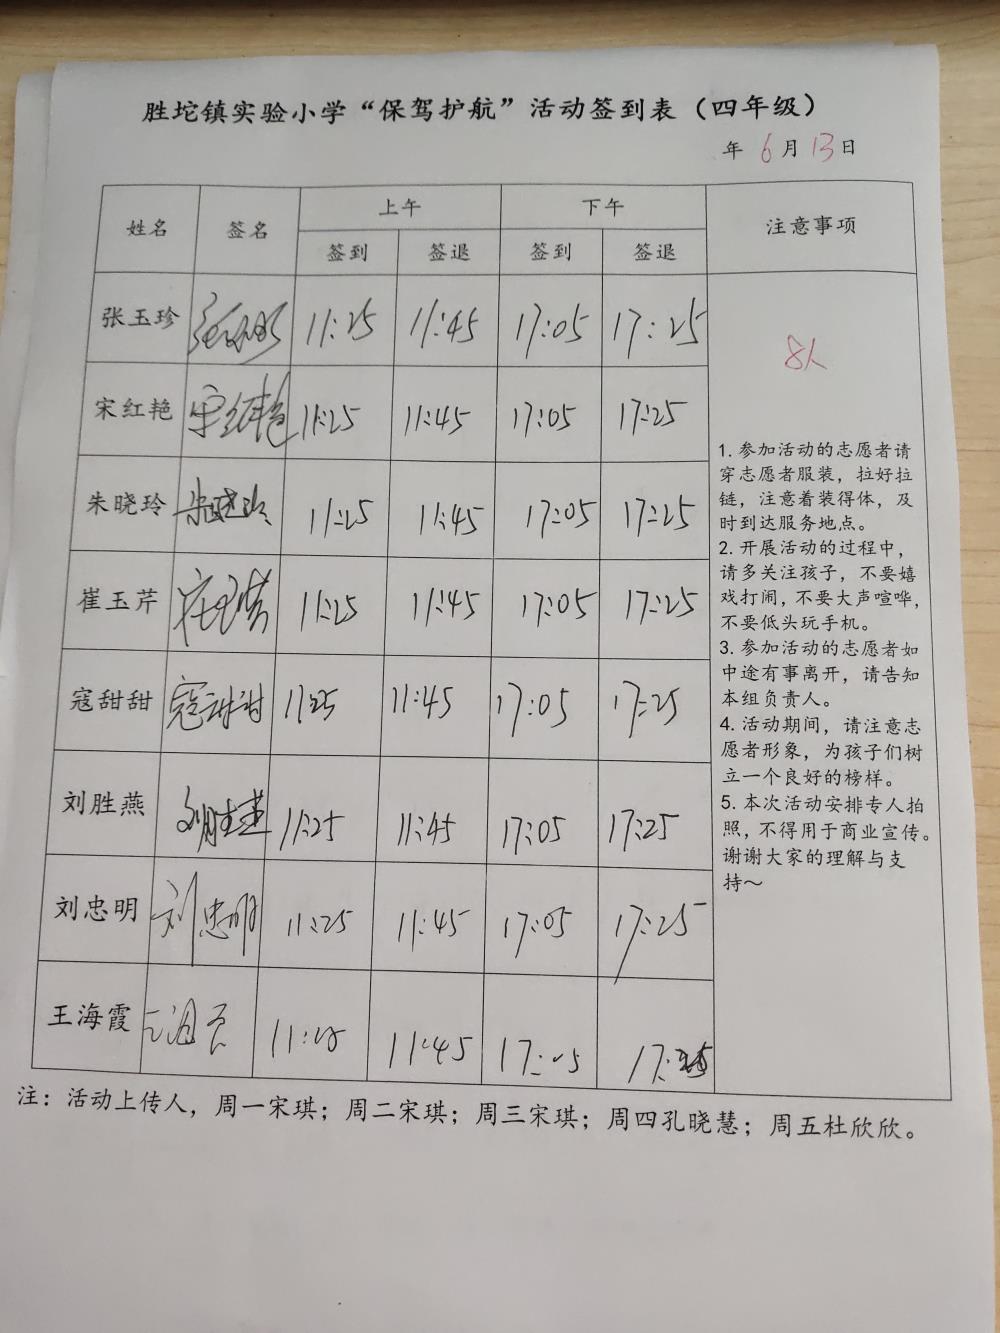 胜坨镇实验小学“保驾护航”活动签到表（四年级）
年 6 月 13 日
姓名 签名 上午 下午 注意事项
签到 签退 签到 签退
张玉珍 11:25 11:45 17:05 17:25
8人
宋红艳 宋红艳 11:25 11:45 17:05 17:25
朱晓玲 朱晓玲 11:25 11:45 17:05 17:25
崔玉芹 崔玉芹 11:25 11:45 17:05 17:25
寇甜甜 寇甜甜 11:25 11:45 17:05 17:25
刘胜燕 刘胜燕 11:25 11:45 17:05 17:25
刘忠明 刘忠明 11:25 11:45 17:05 17:25
王海霞 11:45 17:05 17:25
1. 参加活动的志愿者请
穿志愿者服装，拉好拉
链，注意着装得体，及
时到达服务地点。
2. 开展活动的过程中，
请多关注孩子，不要嬉
戏打闹，不要大声喧哗，
不要低头玩手机。
3. 参加活动的志愿者如
中途有事离开，请告知
本组负责人。
4. 活动期间，请注意志
愿者形象，为孩子们树
立一个良好的榜样。
5. 本次活动安排专人拍
照，不得用于商业宣传。
谢谢大家的理解与支
持～
注：活动上传人，周一宋琪；周二宋琪；周三宋琪；周四孔晓慧；周五杜欣欣。